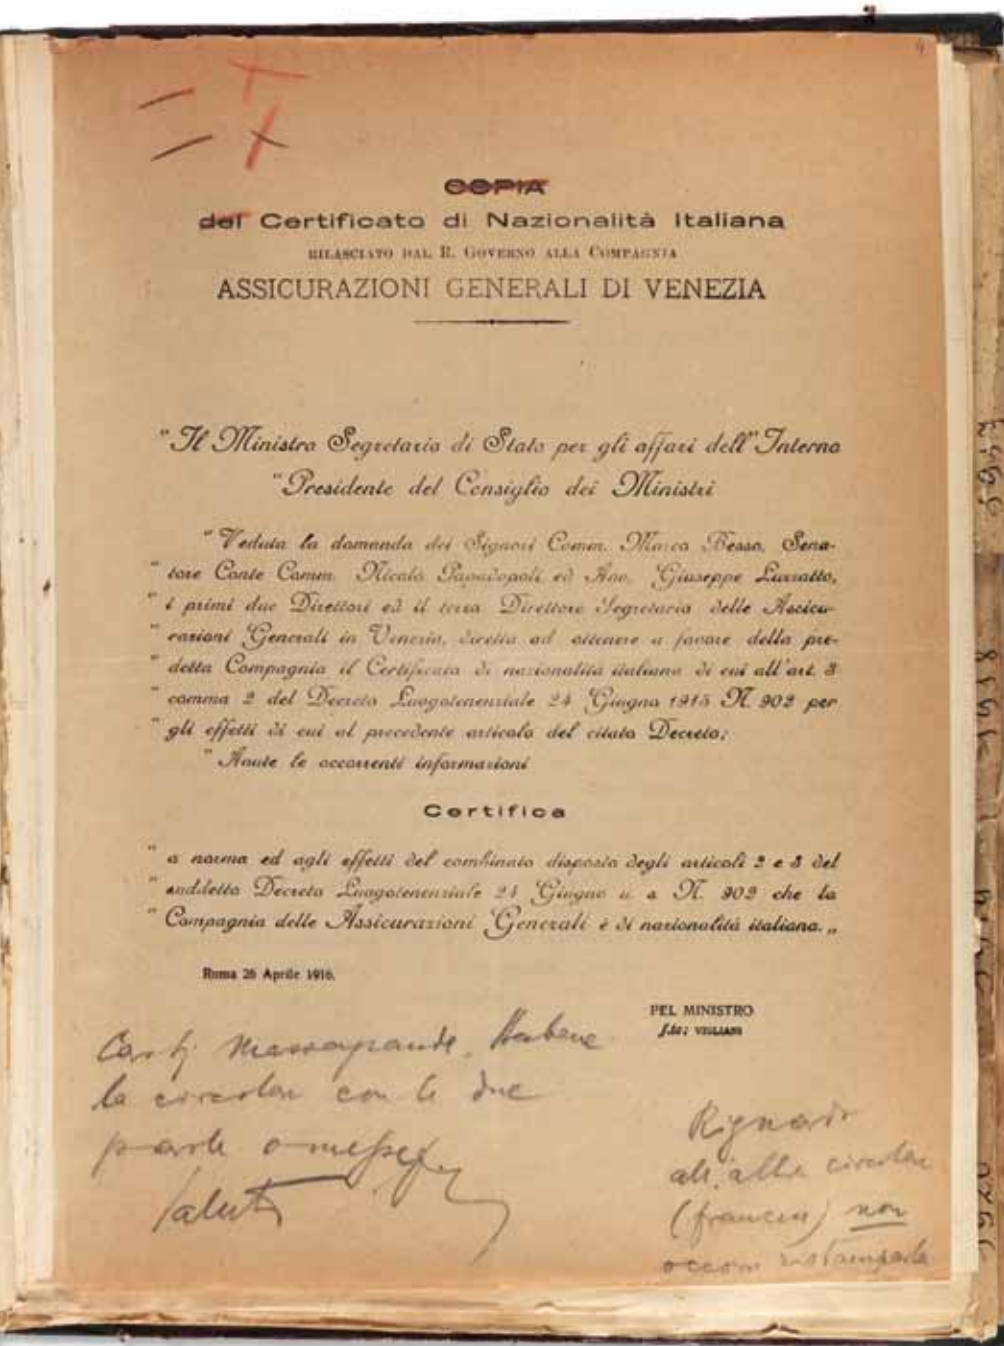 4
COPIA
del Certificato di Nazionalità Italiana
RILASCIATO DAL R. GOVERNO ALLA COMPAGNIA
ASSICURAZIONI GENERALI DI VENEZIA
"Il Ministro Segretario di Stato per gli affari dell'Interno
"Presidente del Consiglio dei Ministri
"Veduta la domanda dei Signori Comm. Marco Besso, Sena-
"tore Conte Comm. Nicolò Papadopoli ed Avv. Giuseppe Luzzatto,
"i primi due Direttori ed il terzo Direttore Segretario delle Assicu-
"razioni Generali in Venezia, diretta ad ottenere a favore della pre-
"detta Compagnia il Certificato di nazionalità italiana di cui all'art. 3
"comma 2 del Decreto Luogotenenziale 24 Giugno 1915 N. 902 per
"gli effetti di cui al precedente articolo del citato Decreto;
"Avute le occorrenti informazioni
Certifica
"a norma ed agli effetti del combinato disposto degli articoli 2 e 3 del
"suddetto Decreto Luogotenenziale 24 Giugno u. a. N. 902 che la
"Compagnia delle Assicurazioni Generali è di nazionalità italiana.„
Roma 26 Aprile 1916.
PEL MINISTRO
f.to: VIGLIANI
la circolare con le due
parole omesse
Saluti
alla circolare
(francese) non
occorre ristamparla